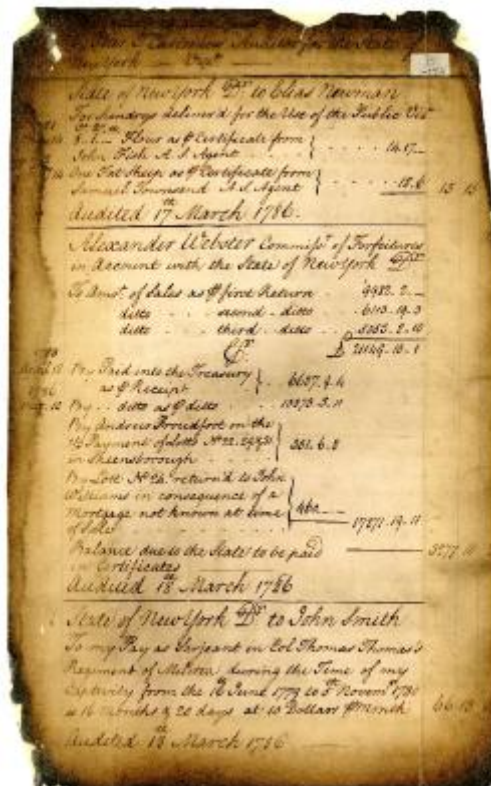 Auditor for the State of
New York
State of New York Dr to Elias Newman
For Sundrys deliver'd for the Use of the Public Vizt
Flour as ⅌ Certificate from
John Fish A.S. Agent } 14.17.
One Fat Sheep as ⅌ Certificate from
Samuel Townsend A.S. Agent } 18.6 15 15
Audited 17th March 1786.
Alexander Webster Commissr. of Forfeitures
in Account with the State of New York Dr
To Amot. of Sales as ⅌ first Return 9982.2.
ditto second ditto 6113.19.3
ditto third ditto
Cr £ 21149.10.1
By Paid into the Treasury
as ⅌ Receipt } 6637.9.4
1786
By ditto as ⅌ ditto 10273.3.11
By Andrew Proudfoot on the
Payment of Lotts No 22.
in Skeensborough } 351.6.8
By Lott No 24 return'd to John
Williams in consequence of a
Mortgage not known at time
of Sales 17271.19.11
Balance due to the State to be paid
in Certificates 3877
Audited 18th March 1786
State of New York Dr to John Smith
To my Pay as Serjeant in Col Thomas Thomas's
Regiment of Militia during the Time of my
Captivity from the June to Novemr
is 16 months & 20 days at 10 Dollars ⅌ Month 66 13
Audited 18th March 1786